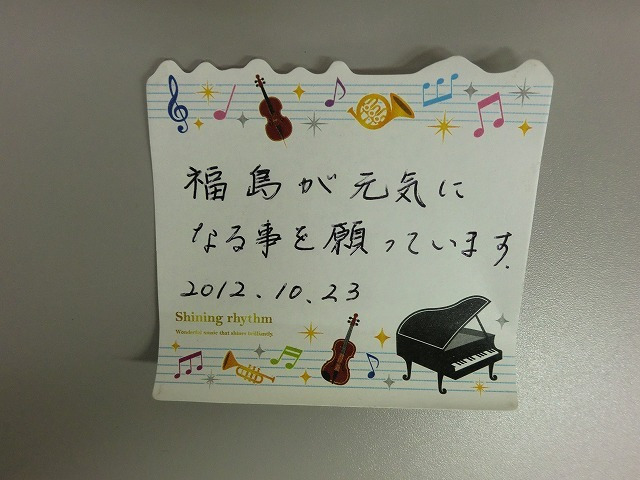 福島が元気に
なる事を願っています.
2012.10.23
Shining rhythm
Wonderful music that shines brilliantly.